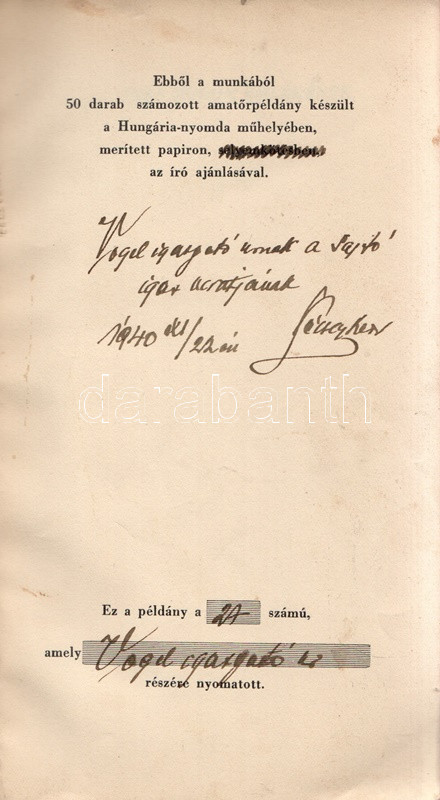 Ebből a munkából
50 darab számozott amatőrpéldány készült
a Hungária-nyomda műhelyében,
merített papiron, selyemkötésben.
az író ajánlásával.
Vogel igazgató urnak a sajtó
igaz barátjának
1940 /22 én
darabanth
Ez a példány a 27 számú,
amely Vogel igazgató úr
részére nyomatott.